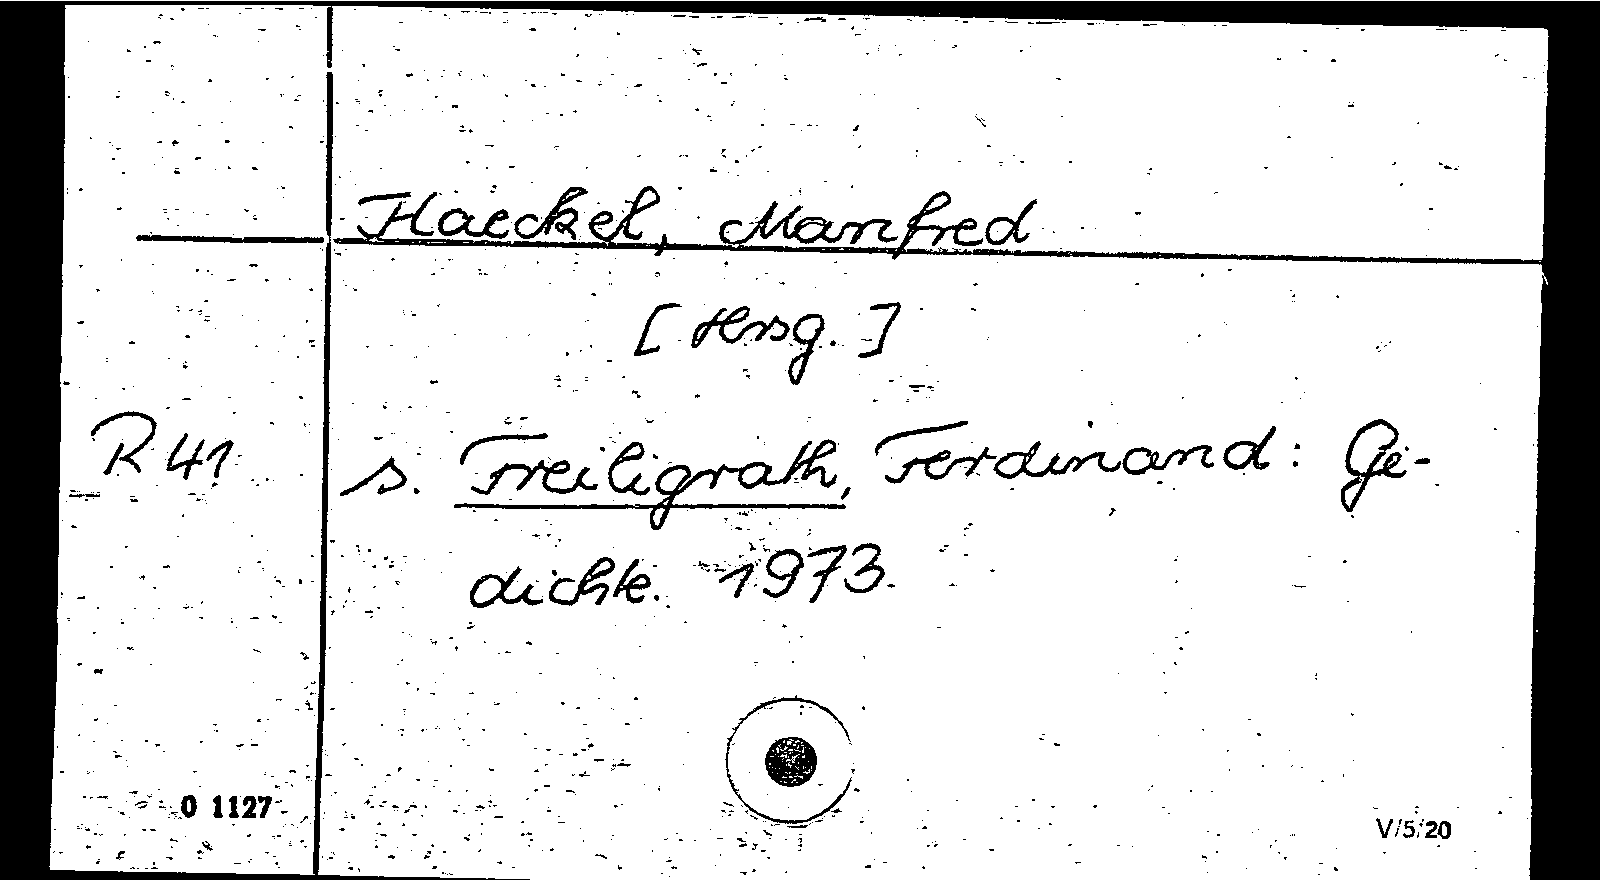 Haeckel, Manfred
[Hrsg.]
R 41 s. Freiligrath, Ferdinand: Ge-
dichte. 1973.
0 1127
V/5/20